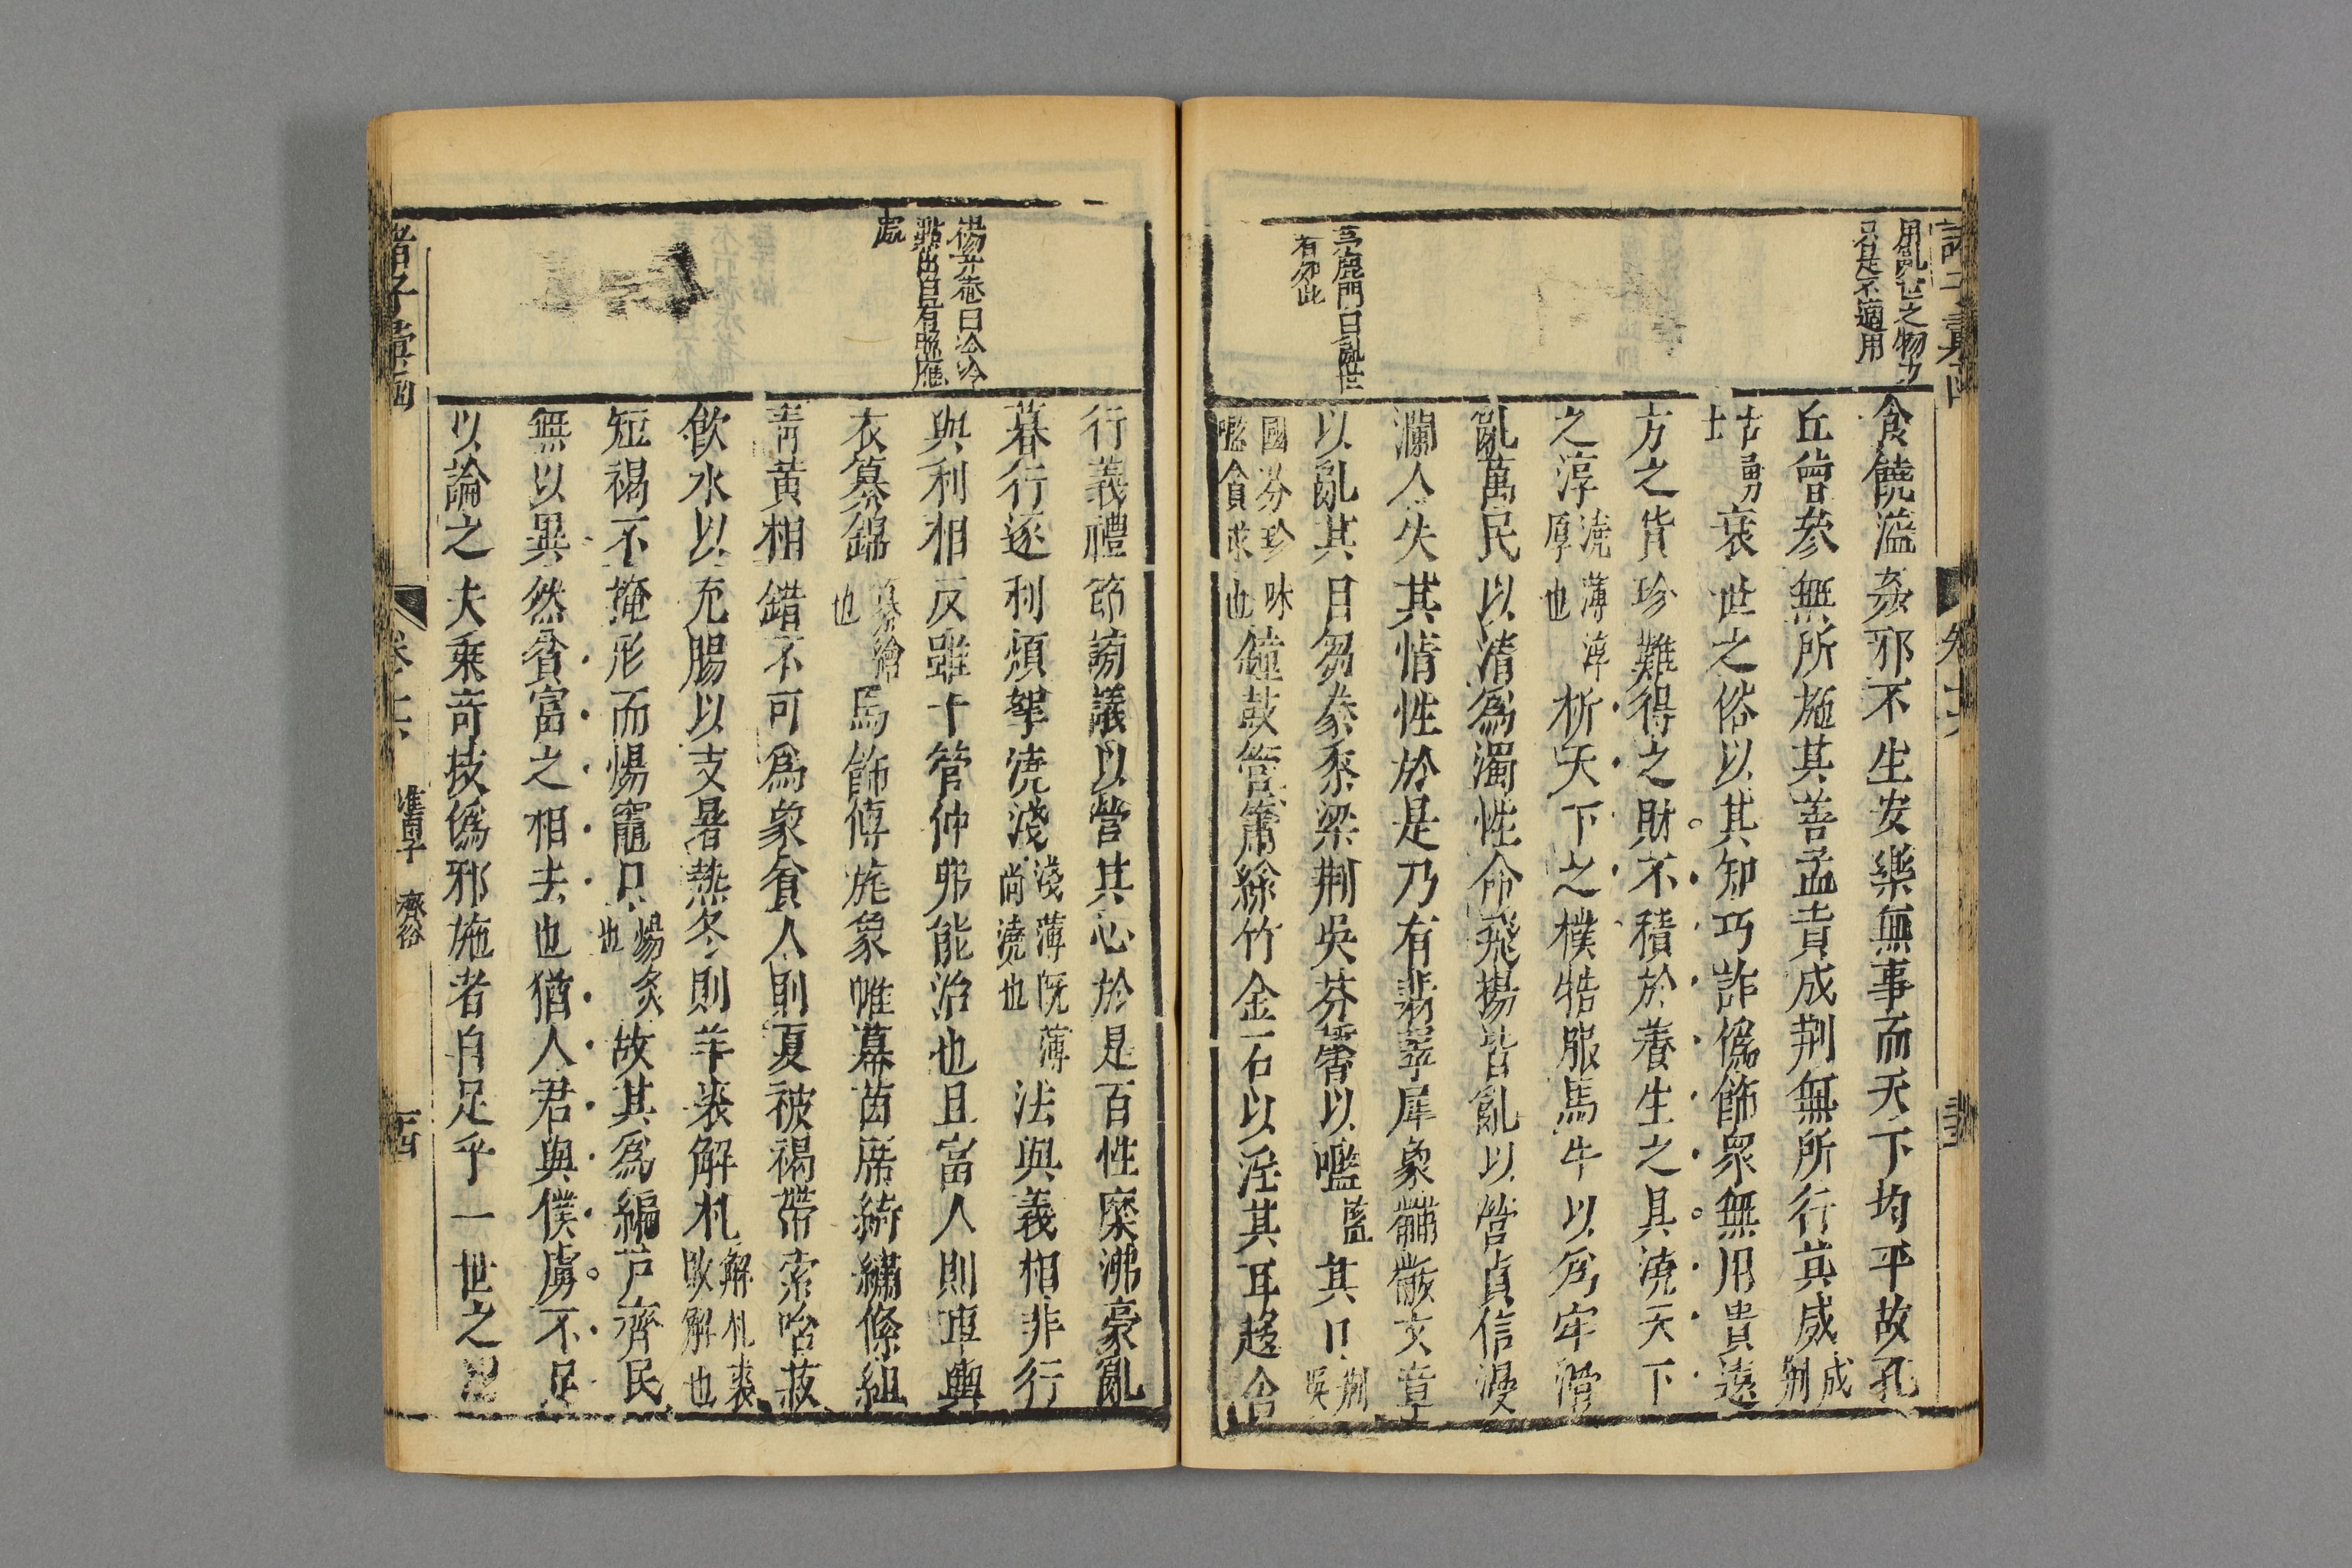 用亂世之物力
只是不適用
茅鹿門曰亂世
有如此
食饒溢姦邪不生安樂無事而天下均平故孔
丘曾參無所施其善孟賁成荆無所行其威成荆
古勇士衰世之俗以其知巧詐偽飾衆無用貴遠
方之貨珍難得之財不積於養生之具澆天下
之淳澆薄淳厚也析天下之樸牿服馬牛以為牢滑
亂萬民以清為濁性命飛揚皆亂以營貞信漫
瀾人失其情性於是乃有翡翠犀象黼黻文章
以亂其目芻豢黍梁荆吳芬馨以嚂其口荆吳
國芬珍味嚂貪求也鐘鼓管簫絲竹金石以淫其耳趍舍
楊升菴曰冷冷
點出自有照應
處
行義禮節謗議以營其心於是百性糜沸豪亂
暮行逐利煩挐澆淺淺薄既薄尚澆也法與義相非行
與利相反雖十管仲弗能治也且富人則車輿
衣纂錦纂繪也馬飾傅旄象帷幕茵席綺繡絛組
青黃相錯不可為象貧人則夏被褐帶索唅菽
飲水以充腸以支暑熱冬則羊裘解札解札裘敗解也
短褐不掩形而煬竈口煬炙也故其為編戸齊民
無以異然貧富之相去也猶人君與僕虜不足
以論之夫乘奇技偽邪施者自足乎一世之
諸子彙函
卷之十六
淮南子
齊俗